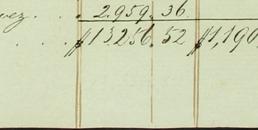 vez . . 2.959. 36
. . . $13256. 52 $1,190